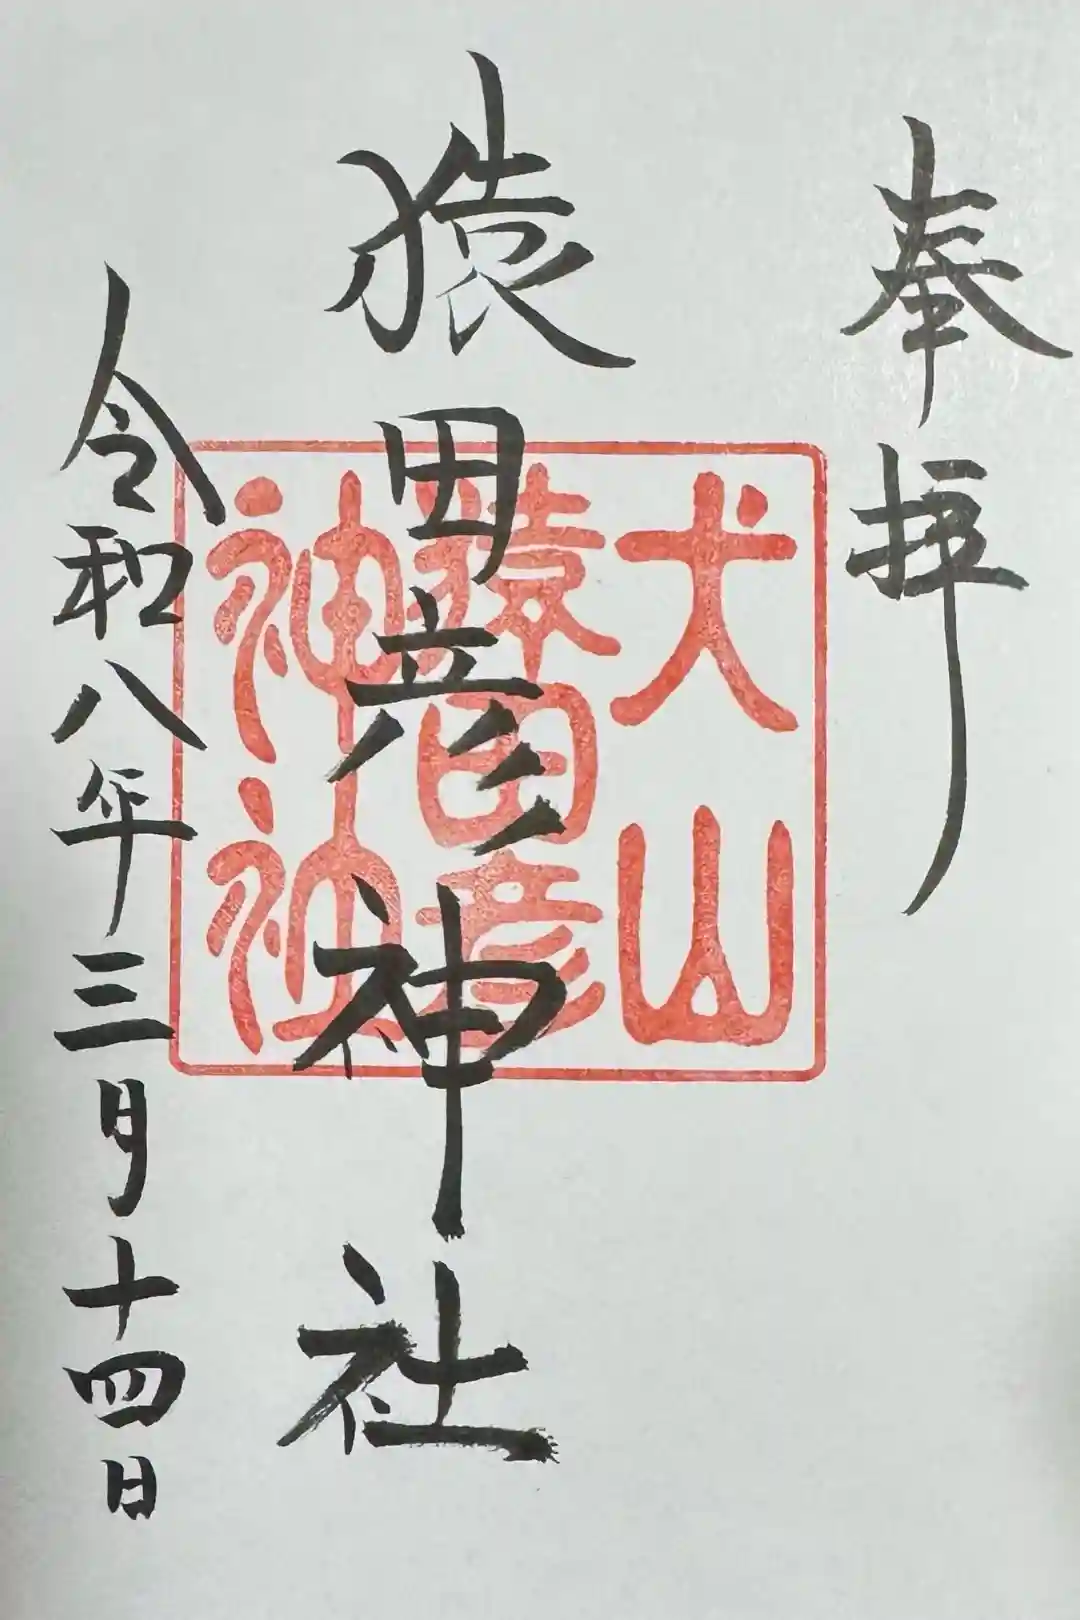 奉拝
猿田彦神社
令和八年三月十四日
犬山
猿田彦
神社